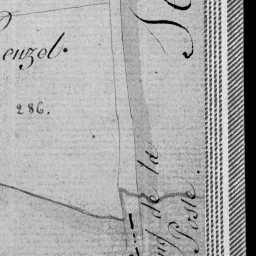 enzel.
286.
de la
Poste.